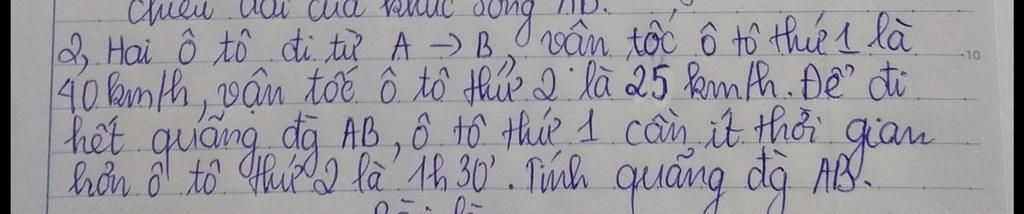 chiều dài của khúc sông AB.
2, Hai ô tô đi từ A → B, vận tốc ô tô thứ 1 là
40 km/h, vận tốc ô tô thứ 2 là 25 km/h. Để đi
hết quãng đg AB, ô tô thứ 1 cần ít thời gian
hơn ô tô thứ 2 là 1h 30'. Tính quãng đg AB.